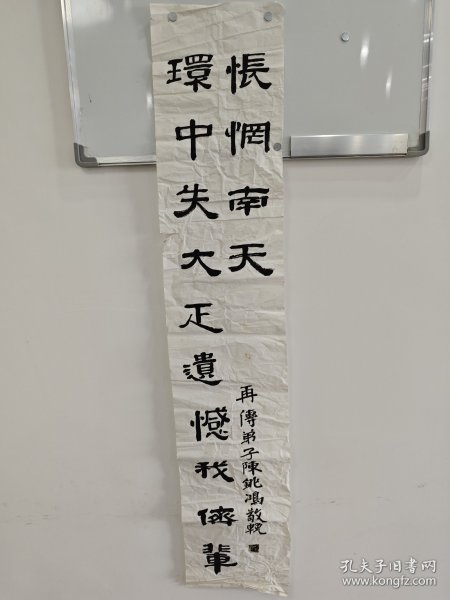 環中失大疋遺憾我儕輩
悵惘南天
再傳弟子陳鴻敬輓
孔夫子旧书网
www.kongfz.com